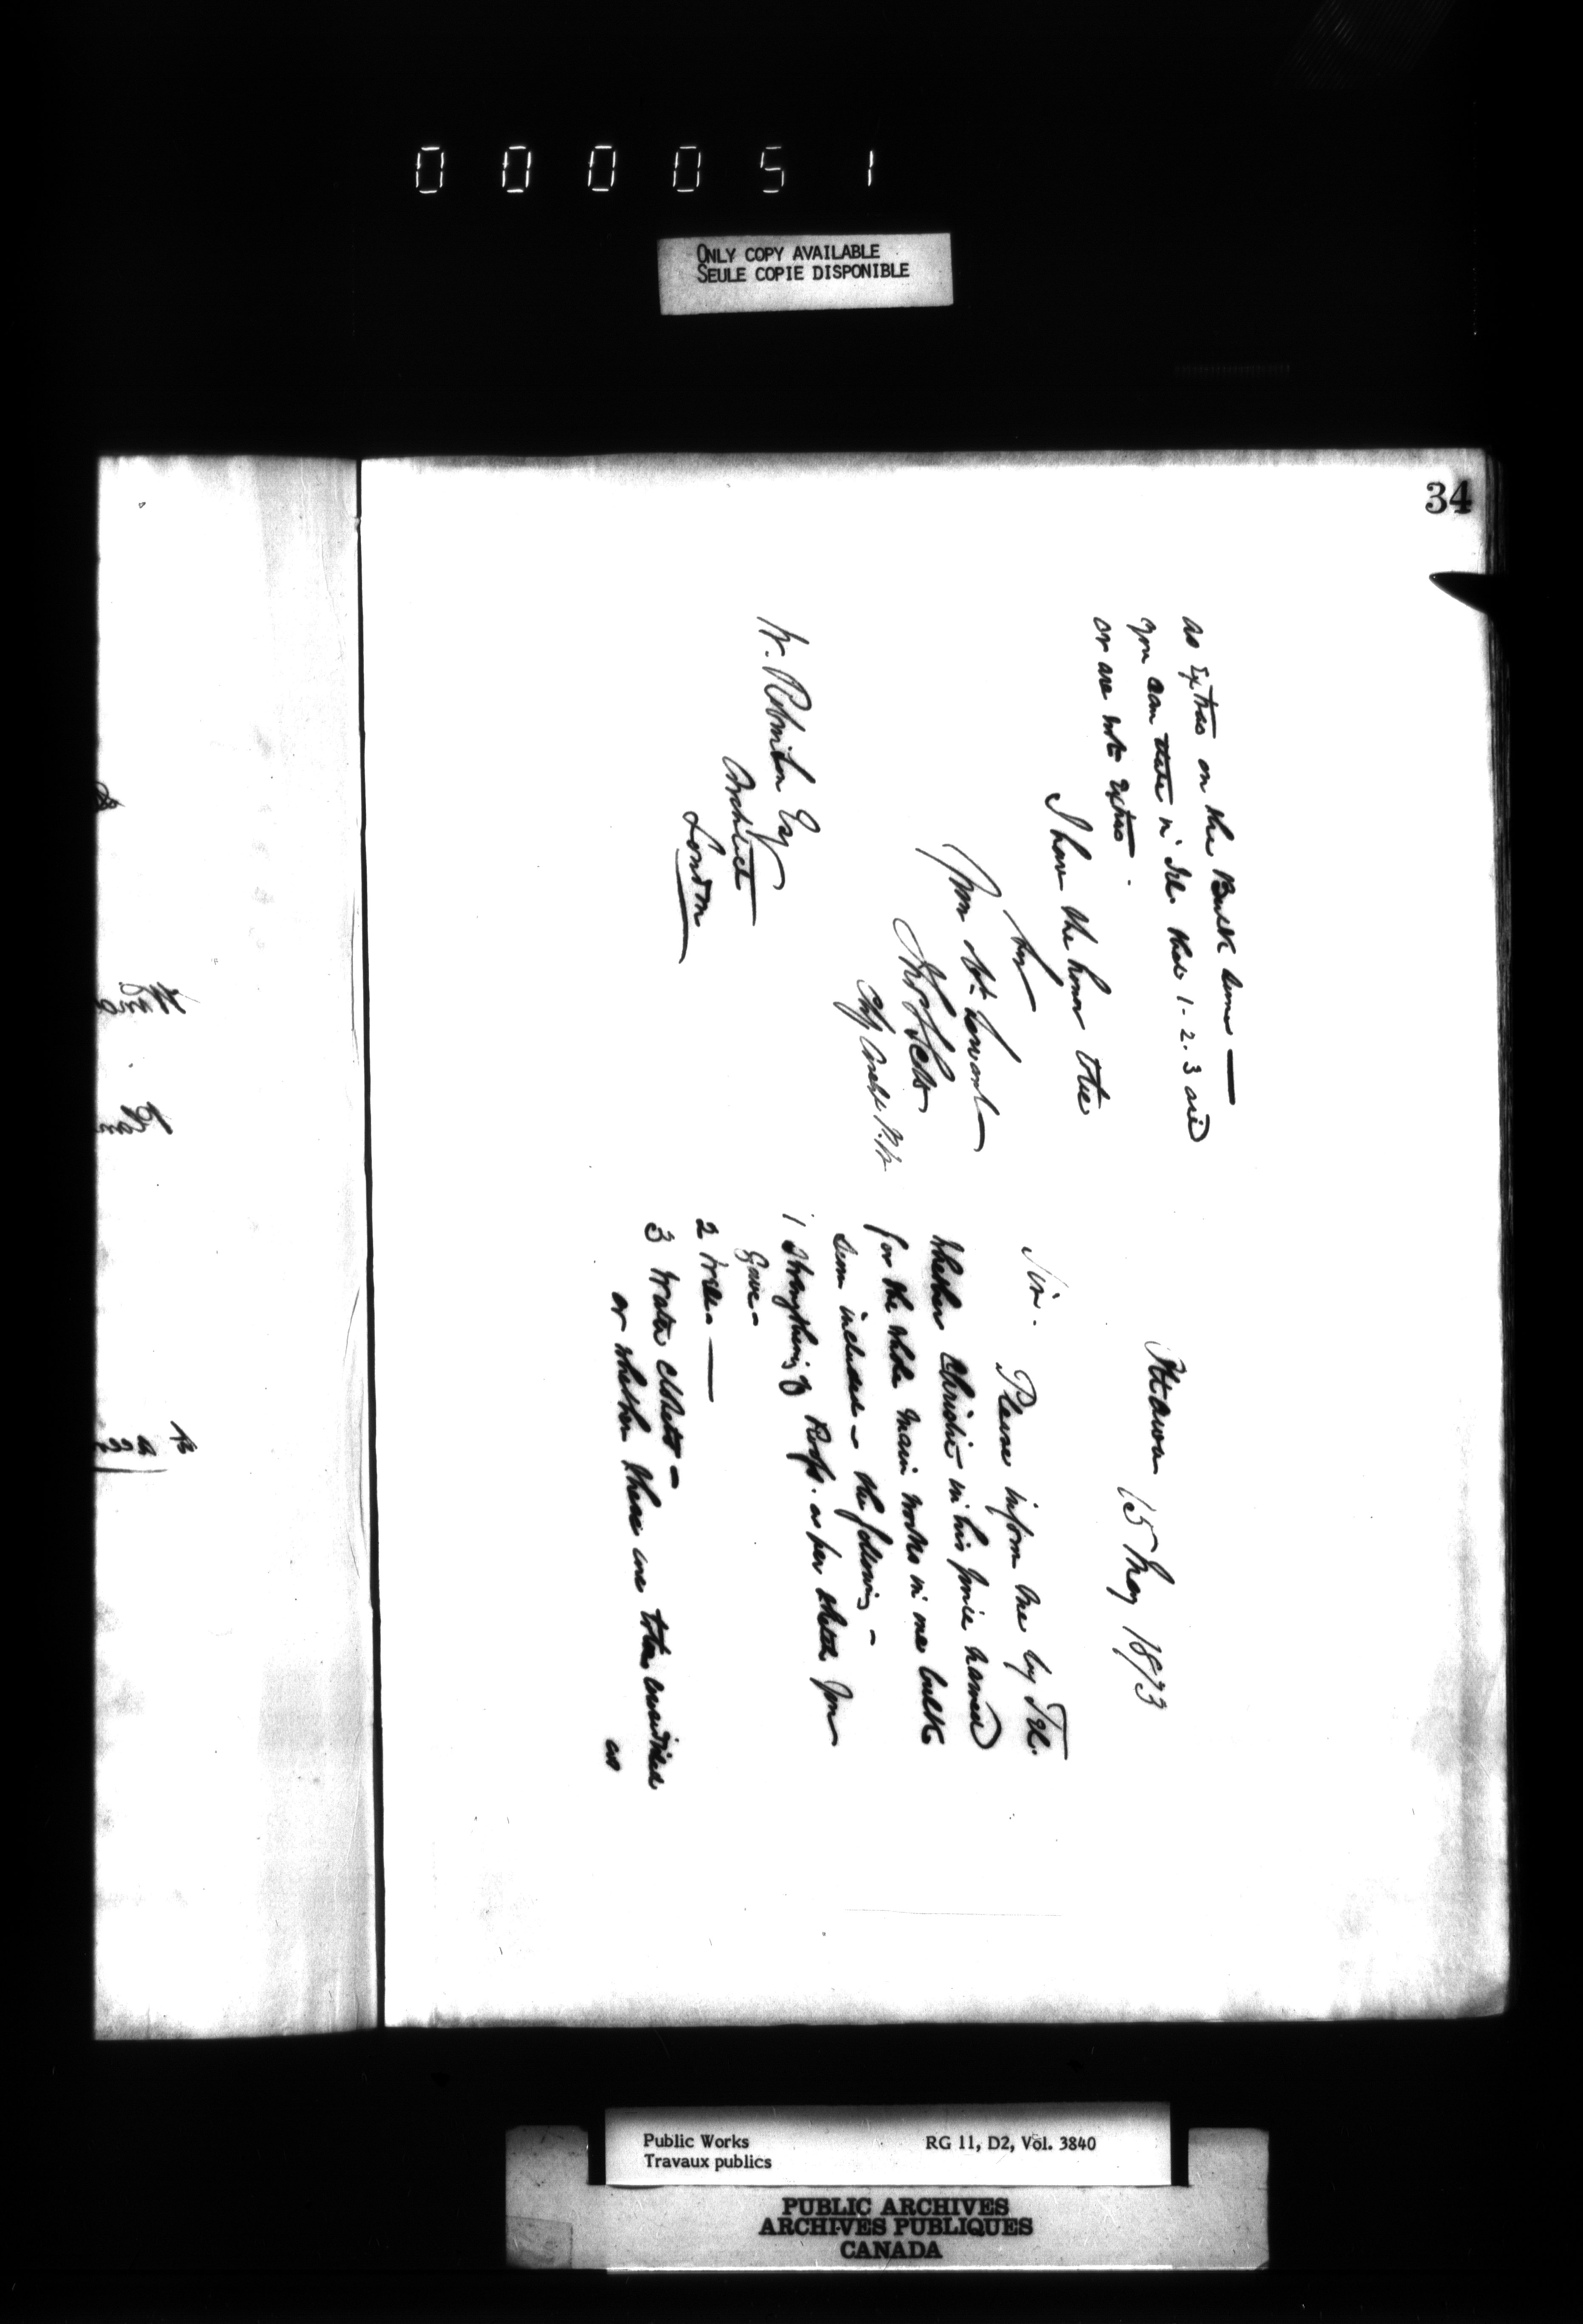 000051
ONLY COPY AVAILABLE
SEULE COPIE DISPONIBLE
34
Ottawa 15 May 1873
Sir.
Please inform me by Tel.
Whether Christie in his price named
for the whole main works in one bulk
sum included – the following –
1 Strengthening of Roofs. as per sketch you
gave –
2 —
3 Water closets –
or whether these are to be considered
as
as Extras on the Bulk Sum —
you can state in Tel. that 1-2.3 are
or are not extras.
I have the honor to be
Sir
Your Obt. Servant
Thos S Scott
Chf Archt P.W.
W. Robinson Esq
Architect
London
Public Works
Travaux publics
RG 11, D2, Vol. 3840
PUBLIC ARCHIVES
ARCHIVES PUBLIQUES
CANADA